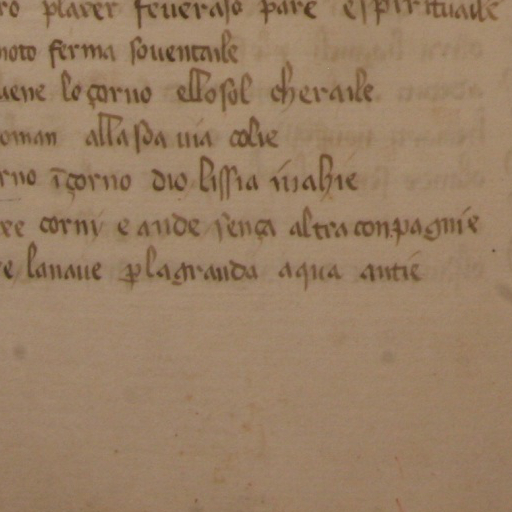 ro placer feveraso pare espirituaile
moto ferma soventaile
uene loçorno ellosol cheraile
oman allasoa via colie
rno ĩçorno dio lissia inahie
re corni e ande sença altra conpagnie
e lanaue ꝑlagranda aqua antie